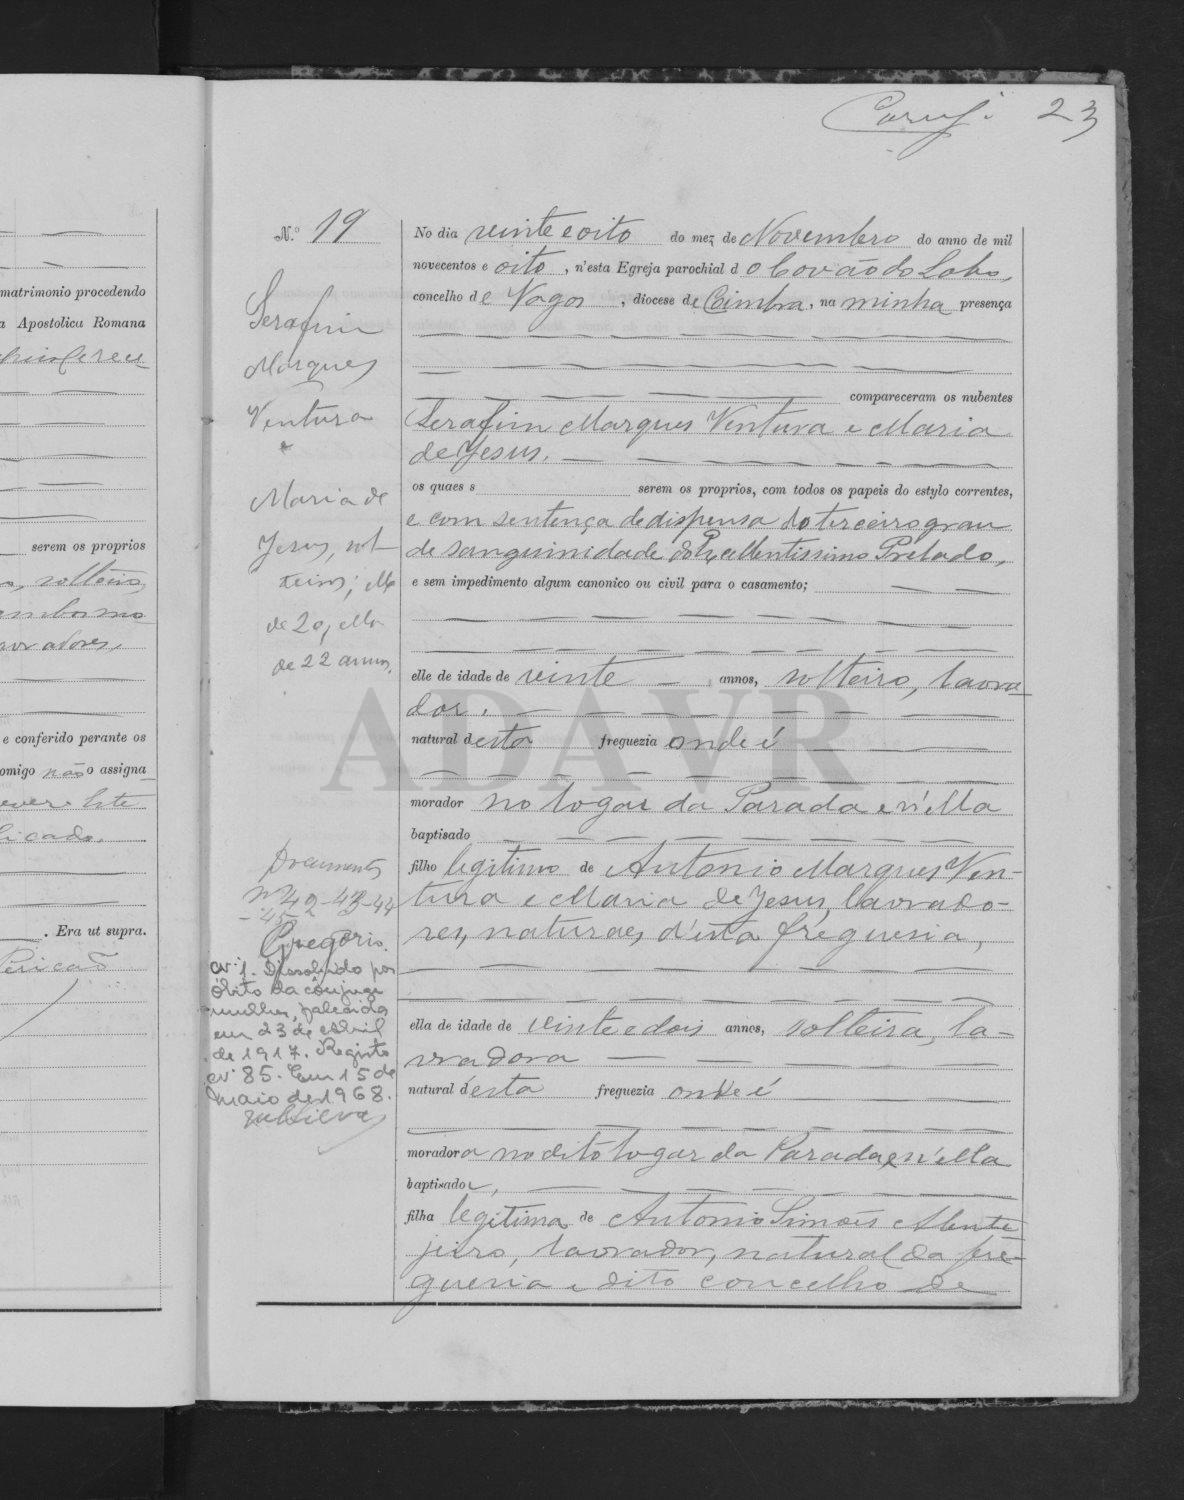 23
matrimonio procedendo
a Apostolica Romana
serem os proprios
o, solteiro,
ambos mo
avradores,
e conferido perante os
omigo não o assigna
ever. Este
licado.
. Era ut supra.
N.º 19
Serafim
Marques
Ventura
e
Maria de
Jesus, sol-
teiros; elle
de 20, ella
de 22 annos.
Documentos
nº 42-43-44
-45-
Gregorio.
Nº 1. Dissolvido por
óbito da cônjuge
mulher, falecida
em 23 de Abril
de 1917. Registo
nº 85. Em 15 de
Maio de 1968.
No dia vinte e oito do mez de Novembro do anno de mil
novecentos e oito, n'esta Egreja parochial do Covão do Lobo,
concelho de Vagos, diocese de Coimbra, na minha presença
compareceram os nubentes
Serafim Marques Ventura e Maria
de Jesus.
os quaes s serem os proprios, com todos os papeis do estylo correntes,
e com sentença de dispensa do terceiro grau
de sanguinidade do Excellentissimo Prelado,
e sem impedimento algum canonico ou civil para o casamento;
elle de idade de vinte annos, solteiro, lavra-
dor.
natural d'esta freguezia onde é
morador no logar da Parada e n'ella
baptisado
filho legitimo de Antonio Marques Ven-
tura e Maria de Jesus, lavrado-
res, naturaes d'esta freguesia,
ella de idade de vinte e dois annos, solteira, la-
vradora
natural d'esta freguezia onde é
moradora no dito logar da Parada e n'ella
baptisada,
filha legitima de Antonio Simões Alente-
jeiro, lavrador, natural da fre-
guesia e dito concelho de
ADAVR